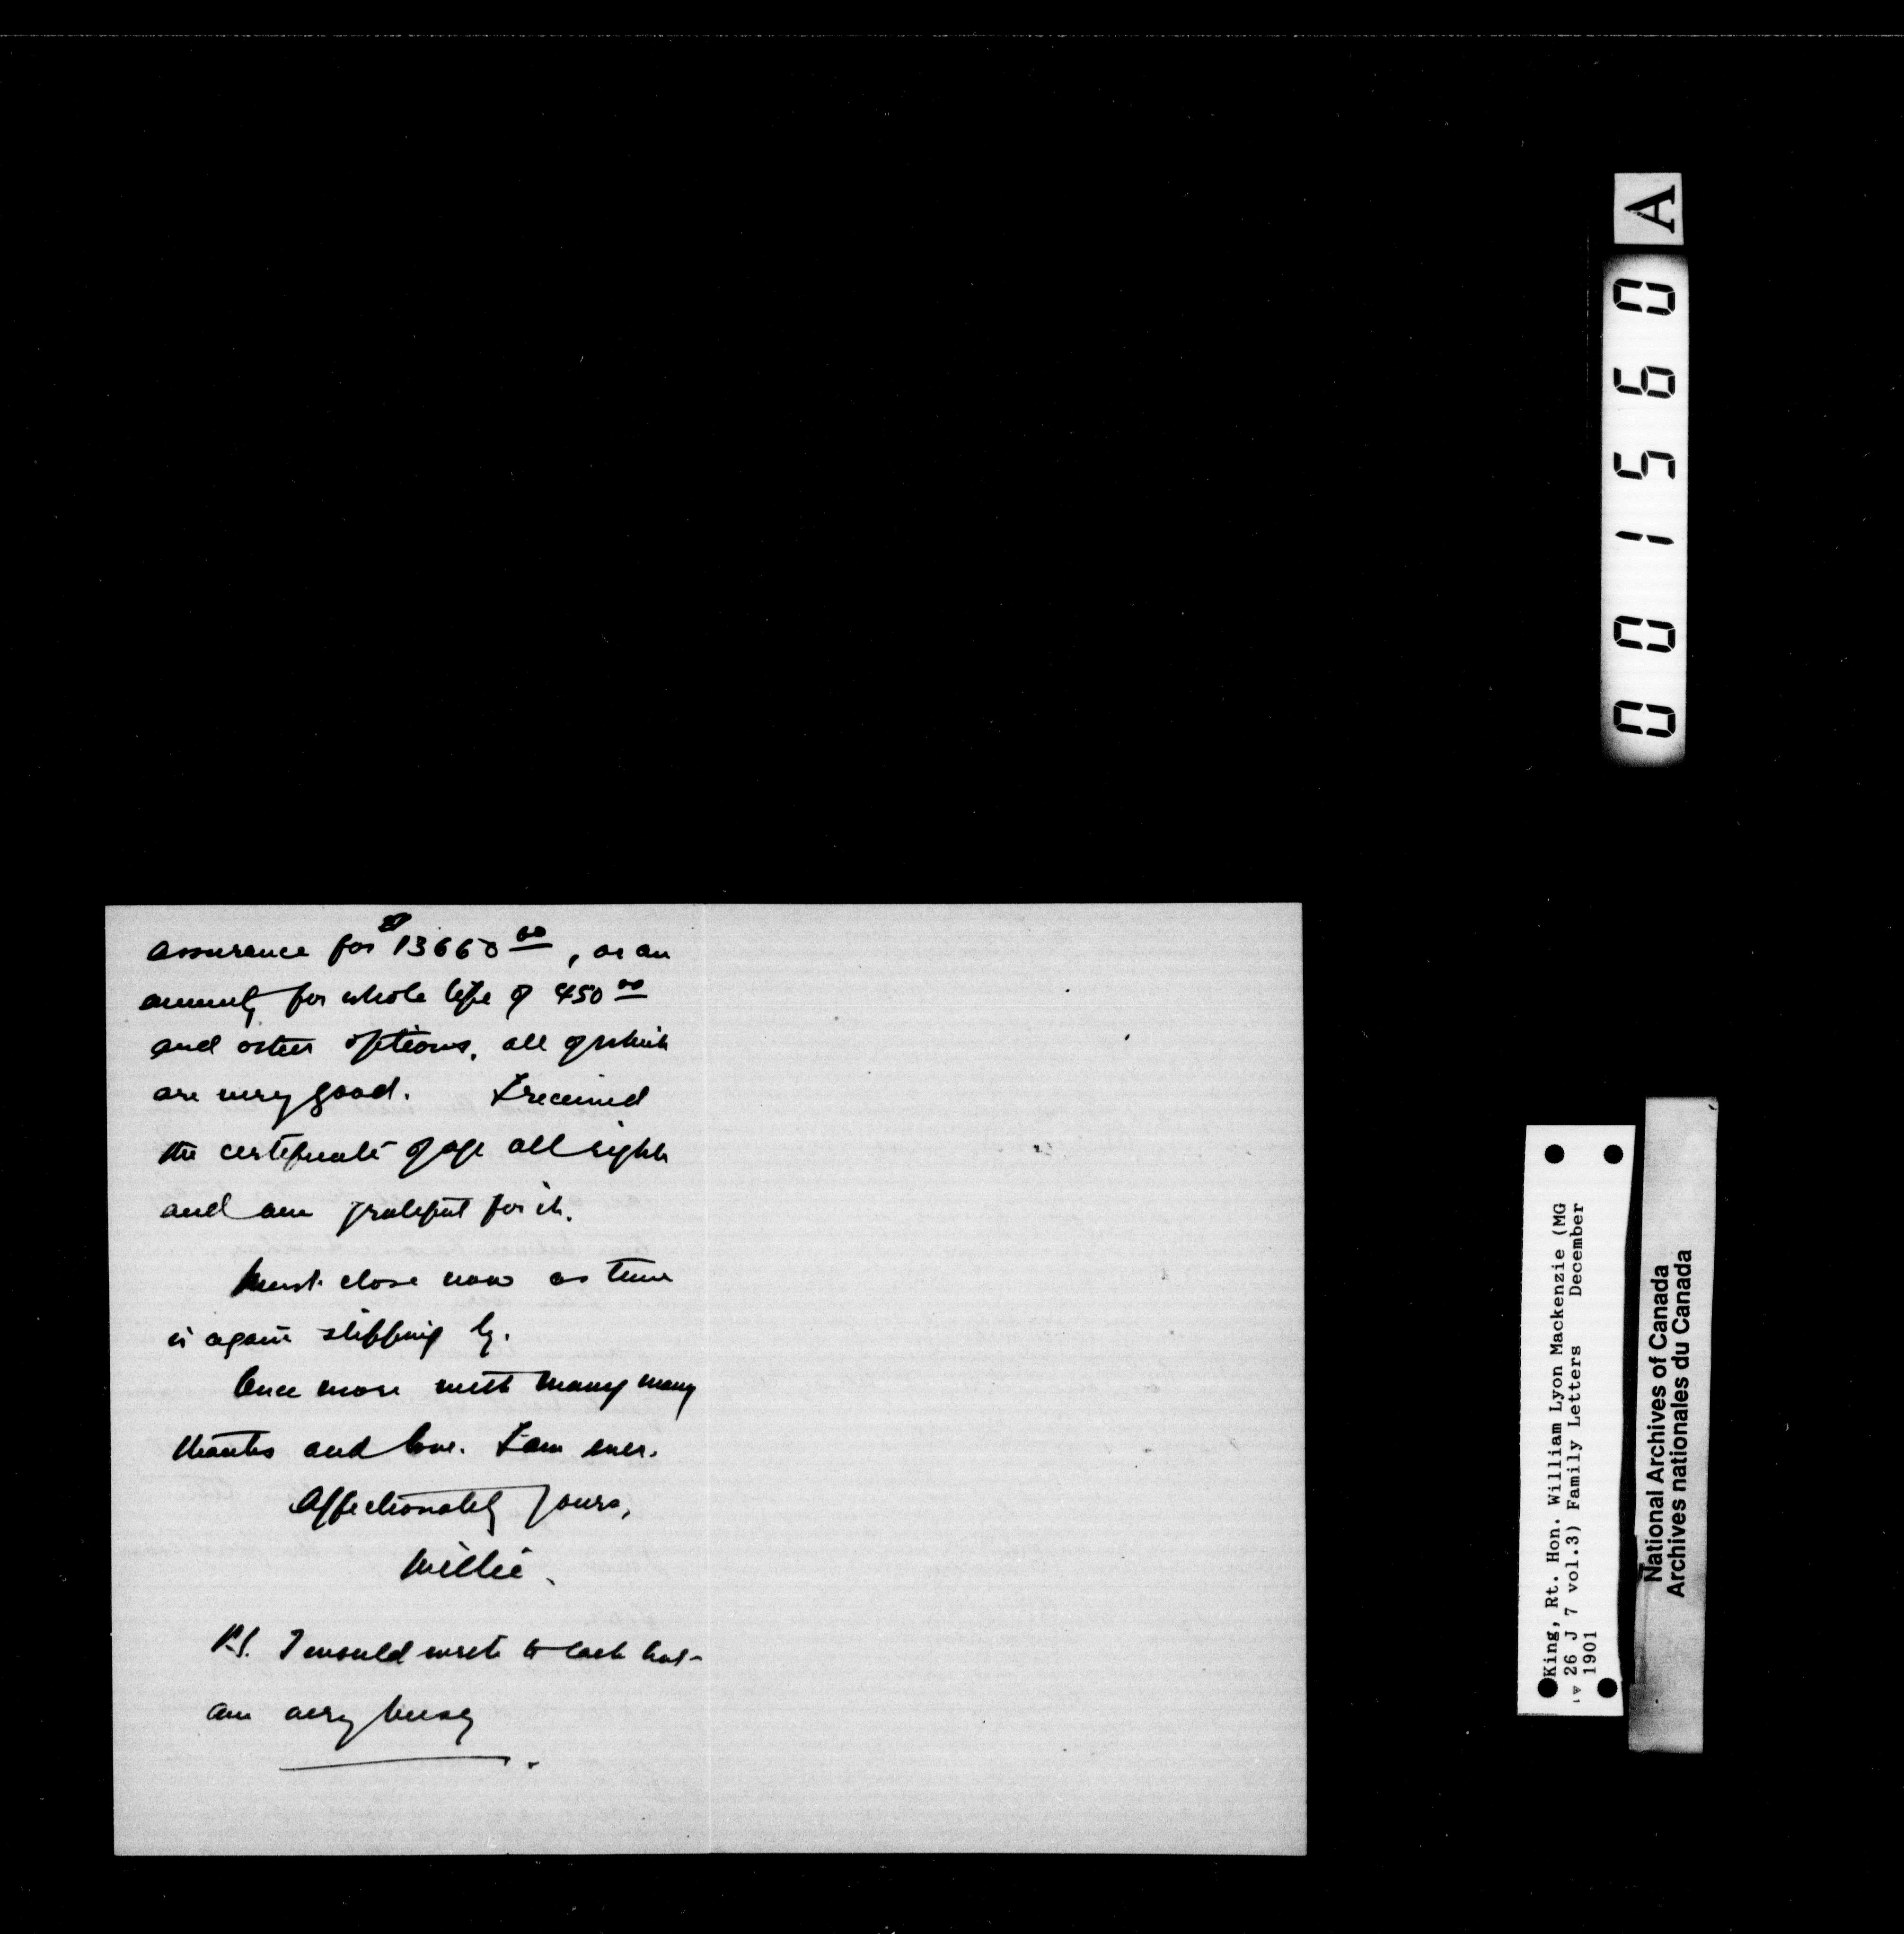 assurance for $13660 00, or an
annuity for whole life of 450 00
and other options, all of which
are very good. I received
the certificate of age all right
and am grateful for it.
Must close now as time
is again slipping by.
Once more with many many
thanks and love. I am ever.
Affectionately yours,
Willie.
P.S. I would write to each but
am very busy
A
001560
King, Rt. Hon. William Lyon Mackenzie (MG
26 J 7 vol.3) Family Letters December
1901
National Archives of Canada
Archives nationales du Canada